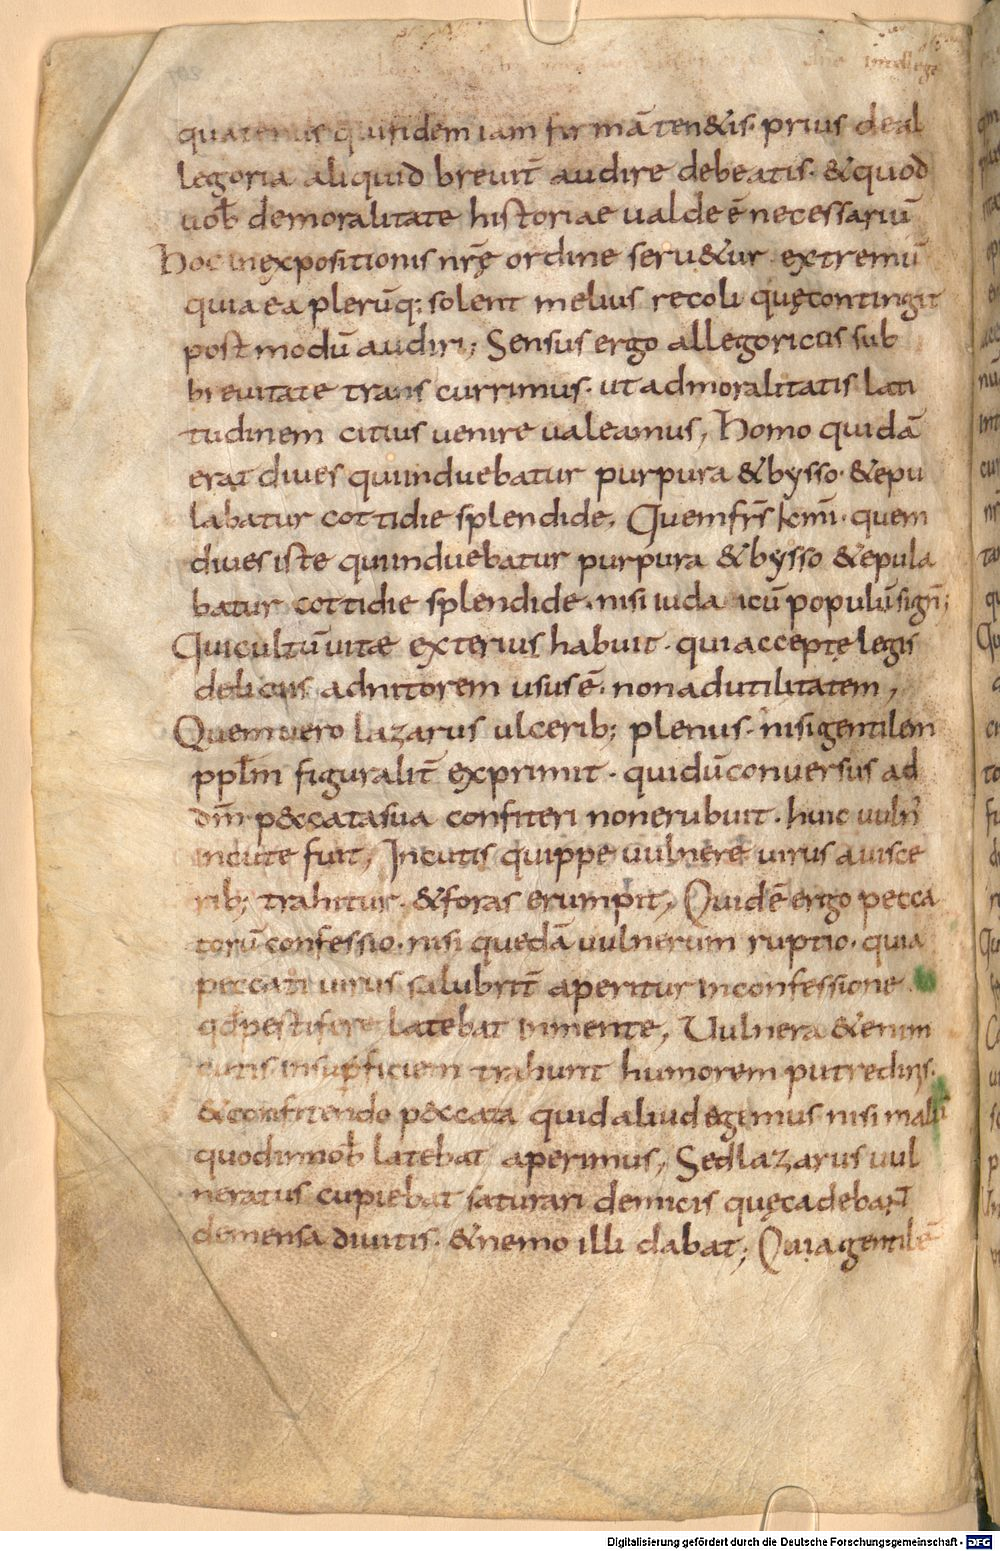 intellege
quatenus quiʼ fidem iam firmā ten&is· prius de al
legoria aliquid breuit̄ audire debeatis· & quod
uob̄ demoralitate historiae ualde ē necessariū
Hoc in expositionis nr̄ę ordine seru&ur extremū
quia ea plerūq; solent melius recoli quęcontingit
post modū audiri; Sensus ergo allegoricus sub
breuitate trans currimus· ut admoralitatis lati
tudinem citius uenire ualeamus, Homo quidā
erat diues qui induebatur purpura & bysso· & epu
labatur cottidie splendide, Quem frs̄ kmī· quem
diues iste qui induebatur purpura & bysso & epula
batur cottidie splendide· nisi iudaicū populū sign̄;
Qui cultū uitae exterius habuit· qui acceptę legis
deliciis adnitorem usus ē· non ad utilitatem,
Quem uero lazarus ulcerib; plenus· nisi gentilem
ppl̄m figuralit̄ exprimit· qui dū conuersus ad
dm̄ p&ccata sua confiteri non erubuit· huic uuln̄
incute fuit, In cutis quippe uulnere uirus a uisce
rib; trahitur· & foras erumpit, Quid ē ergo pecca
torū confessio· nisi quedā uulnerum ruptio· quia
peccati uirus salubrit̄ aperitur in confessione·
qd̄ pestifere latebat in mente, Uulnera &enim
cutis in sup̄ficiem trahunt humorem putredinis·
& confitendo p&ccata quid aliud egimus nisi malū
quod in nob̄ latebat aperimus, Sed lazarus uul
neratus cupiebat saturari de micis quę cadebant
de mensa diuitis· & nemo illi dabat; Quia gentilē
Digitalisierung gefördert durch die Deutsche Forschungsgemeinschaft - DFG